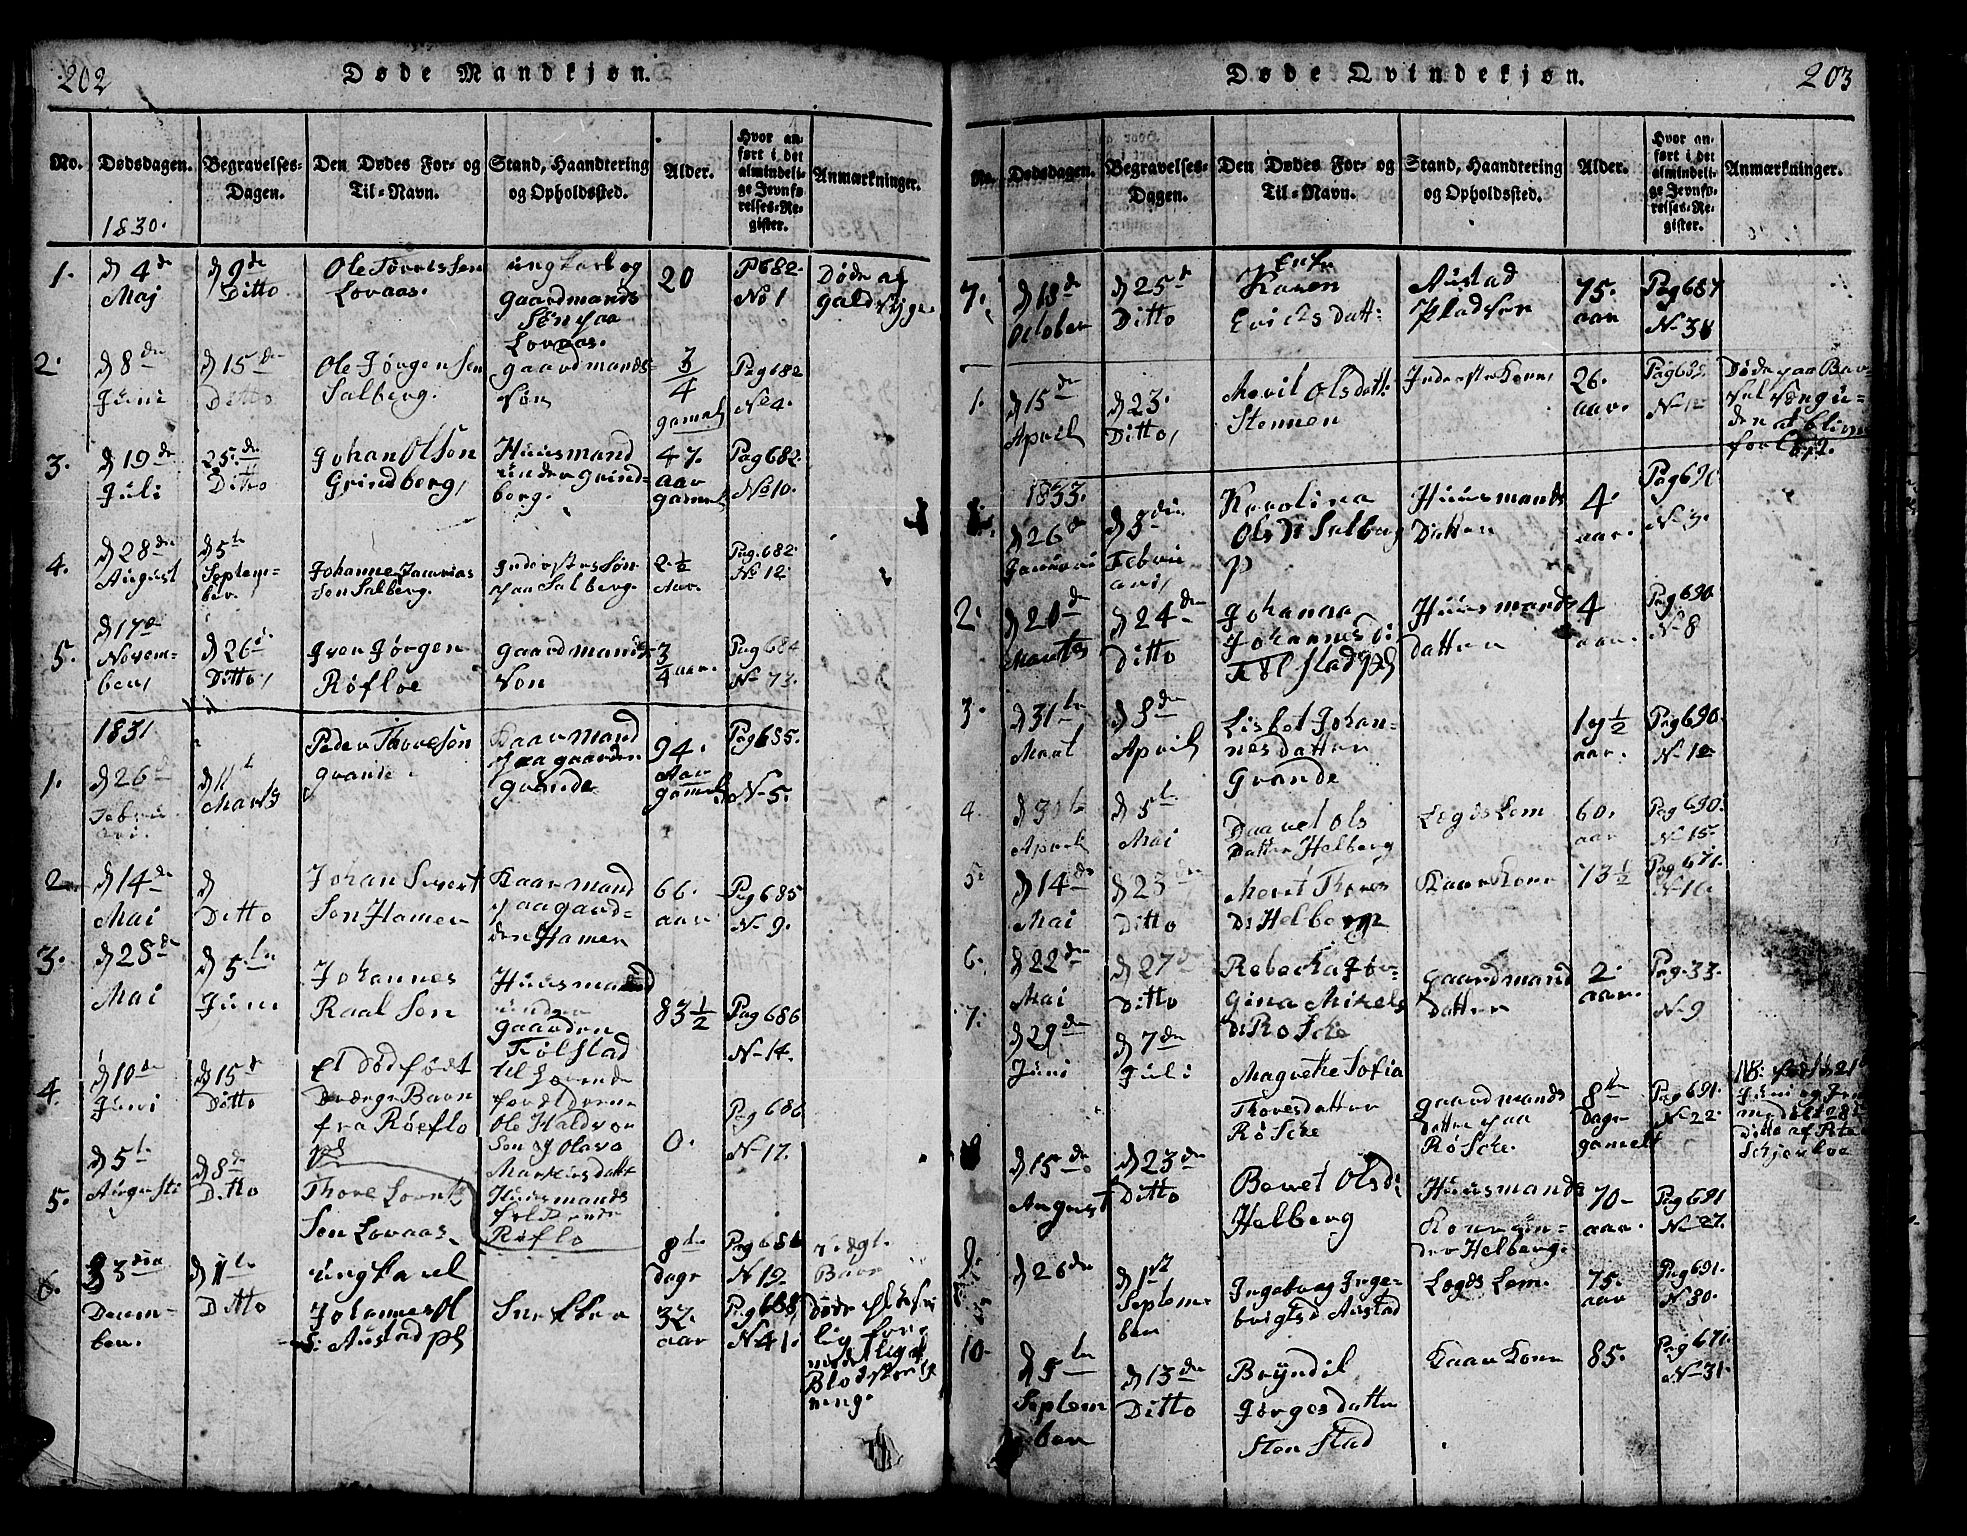 202
Døde Mandkjøn.
No.
Dødsdagen.
Begravelses-
Dagen.
Den Dødes For- og
Til-Navn.
Stand, Haandtering
og Opholdssted.
Alder.
Hvor an-
ført i det
almindeli-
ge Jevnfø-
relses-Re-
gister.
Anmærkninger.
1830.
1.
d 4de
Maj
d 9de
Ditto
Ole Tørrissen
Lovaas.
ungkarl og
gaardmands
Søn paa
Lovaas.
20
P682.
No 1
Døde af
galdsyge
2.
d 8de
Juni
d 15de
Ditto
Ole Jørgensen
Salberg.
gaardmands-
søn
3/4
gamel
Pag682
No 4.
3.
d 19de
Juli
25de
Ditto
Johan Olsøn
Grindberg,
Huusmand
under Grind-
berg.
47.
aar
gamel
Pag682.
No 10.
4.
d 28de
August
d 5te
Septem-
ber.
Johannes Zacarias
søn Salberg.
Inderstes Søn
paa Salberg.
2 1/2
Aar.
Pag.682.
No 12.
5.
d 17de
Novem-
ber,
d 26de
Ditto,
Iver Jørgen
Røfloe
gaardmands-
søn
3/4 aar.
Pag684
No 73.
1831
1.
d 26de
Febru
ari.
d 11te
Marts
Peder Thoresøn
grande.
Kaarmand
paa gaarden
grande
94.
Aar
gamel.
Pag685.
No 5.
2.
d 14de
Mai
d
Ditto
Johan Sivert
Søn Hamer
Kaarmand
paa gaard-
den Hamer
66.
aar.
Pag685
No 9.
3.
d 25de
Mai
d 5te
Juni
Johannes
Raal Søn
Huusmand
under
gaarden
Følstad
83 1/2
Pag686
No 14.
4.
d 10de
Juni
d 15de
Ditto
et Dødfødt
Drænge Barn
fra Røeflo
til hørende
forældrene
Ole Haldvor
Søn og Olava
Markusdatte
0.
Pag686
No 17.
5.
d 5te
Augusti
d 8de
Ditto
Thore Lornts
Søn Lovaas.
Huusmands
folkende
Røflo
8te
dage
Pag686
No 19
Barn
6.
d 3die
Decem-
ber.
d 11te
Ditto
ungkarel
Johannes Ol
s: Austad pl
Snekker
37.
aar
Pag688,
No 41.
døde
Blodstørt
ning.
Døde Qvindekjøn.
203
No.
Dødsdagen.
Begravelses-
Dagen.
Den Dødes For- og
Til-Navn.
Stand, Haandtering
og Opholdssted.
Alder.
Hvor an-
ført i det
almindeli-
ge Jevnfø-
relses-Re-
gister.
Anmærkninger.
7.
d 18de
October
d 25de
Ditto
Enke
Karen
Erichsdatt:
Austad
Pladsen
75.
aar
Pag687
No 38
1.
d 15de
April
d 23.
Ditto,
Marit Olsdatt:
Stennen
Inderste Kone,
26.
aar.
Pag689.
No 12
Døde paa Bar-
selsængu-
den at blive
forløst.
1833.
1.
d 26de
Januari
d 3die
Febru
ari,
Karolina
Olsdt Salberg
p
Huusmands
Datter
4.
aar.
Pag690
No 3.
2.
d 20de
Marts
d 24de
Ditto
Johanna
Johannesd:
Følstadpl
Huusmands
datter
4
aar.
Pag690
No 8
3.
d 31te
Mart
d 8de
April
Lisbet Johan-
nesdatter
Grande
19 1/2
aar.
Pag690.
No 12
4.
d 30te
April
d 5te
Mai
Daaret Ols
Datter Helberg
Legdslem
60.
aar
Pag690.
No 15
5.
d 14de
Mai
d 23de
Ditto
Meret Thores
D: Helberg
Kaarkone
73 1/2
Pag671.
No 16.
6.
d 22de
Mai
d 27de
Ditto
Rebecka Jør-
gina Mikels
D: Røscke
gaardmand
datter
2.
aar.
Pag.33.
No 9
7.
d 29de
Juni
d 7de
Juli
Magreke Sofia
Thoresdatter
Røscke
gaardmands
datter paa
Røscke.
8te
dage
gamelt
Pag691.
No 22.
NB: født d 21de
Juni
Ditto af
Schjerloe
8
d 15de
August
d 23de
Ditto
Beret Olsd:
Helberg
Huusmands
Kone un-
der Helberg.
70
aar.
Pag691
No 27.
9.
d 26de
d 1st
Septem
ber
Ingeborg Inge-
brigtsd Austad
Legds Lem.
75.
aar
Pag691.
No 30.
10.
d 5te
Septem
ber
d 13de
Ditto
Bryndil
Jørgesdatter
Stenstad
Kaar Kone
85.
Pag671.
No 31.